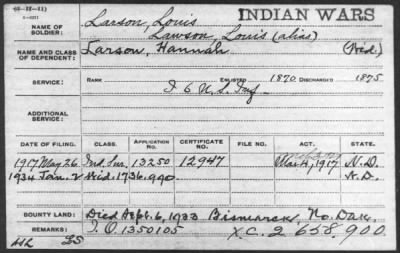 INDIAN WARS
NAME OF SOLDIER: Larson, Louis
Lawson, Louis (alias)
NAME AND CLASS OF DEPENDENT: Larson, Hannah (Wid.)
SERVICE: RANK ENLISTED 1870 DISCHARGED 1875
I 6 U.S. Inf.
ADDITIONAL SERVICE:
DATE OF FILING. CLASS. APPLICATION No. CERTIFICATE No. FILE NO. ACT. STATE.
1917 May 26. Ind. Sur. 13250 12947 Mar. 4, 1917 N.D.
1934 Jan. 2 Wid. 1736.990. N.D.
BOUNTY LAND: Died Sept. 6, 1933 Bismarck, No. Dak.
REMARKS: I.O. 1350105 X.C. 2 658.900.